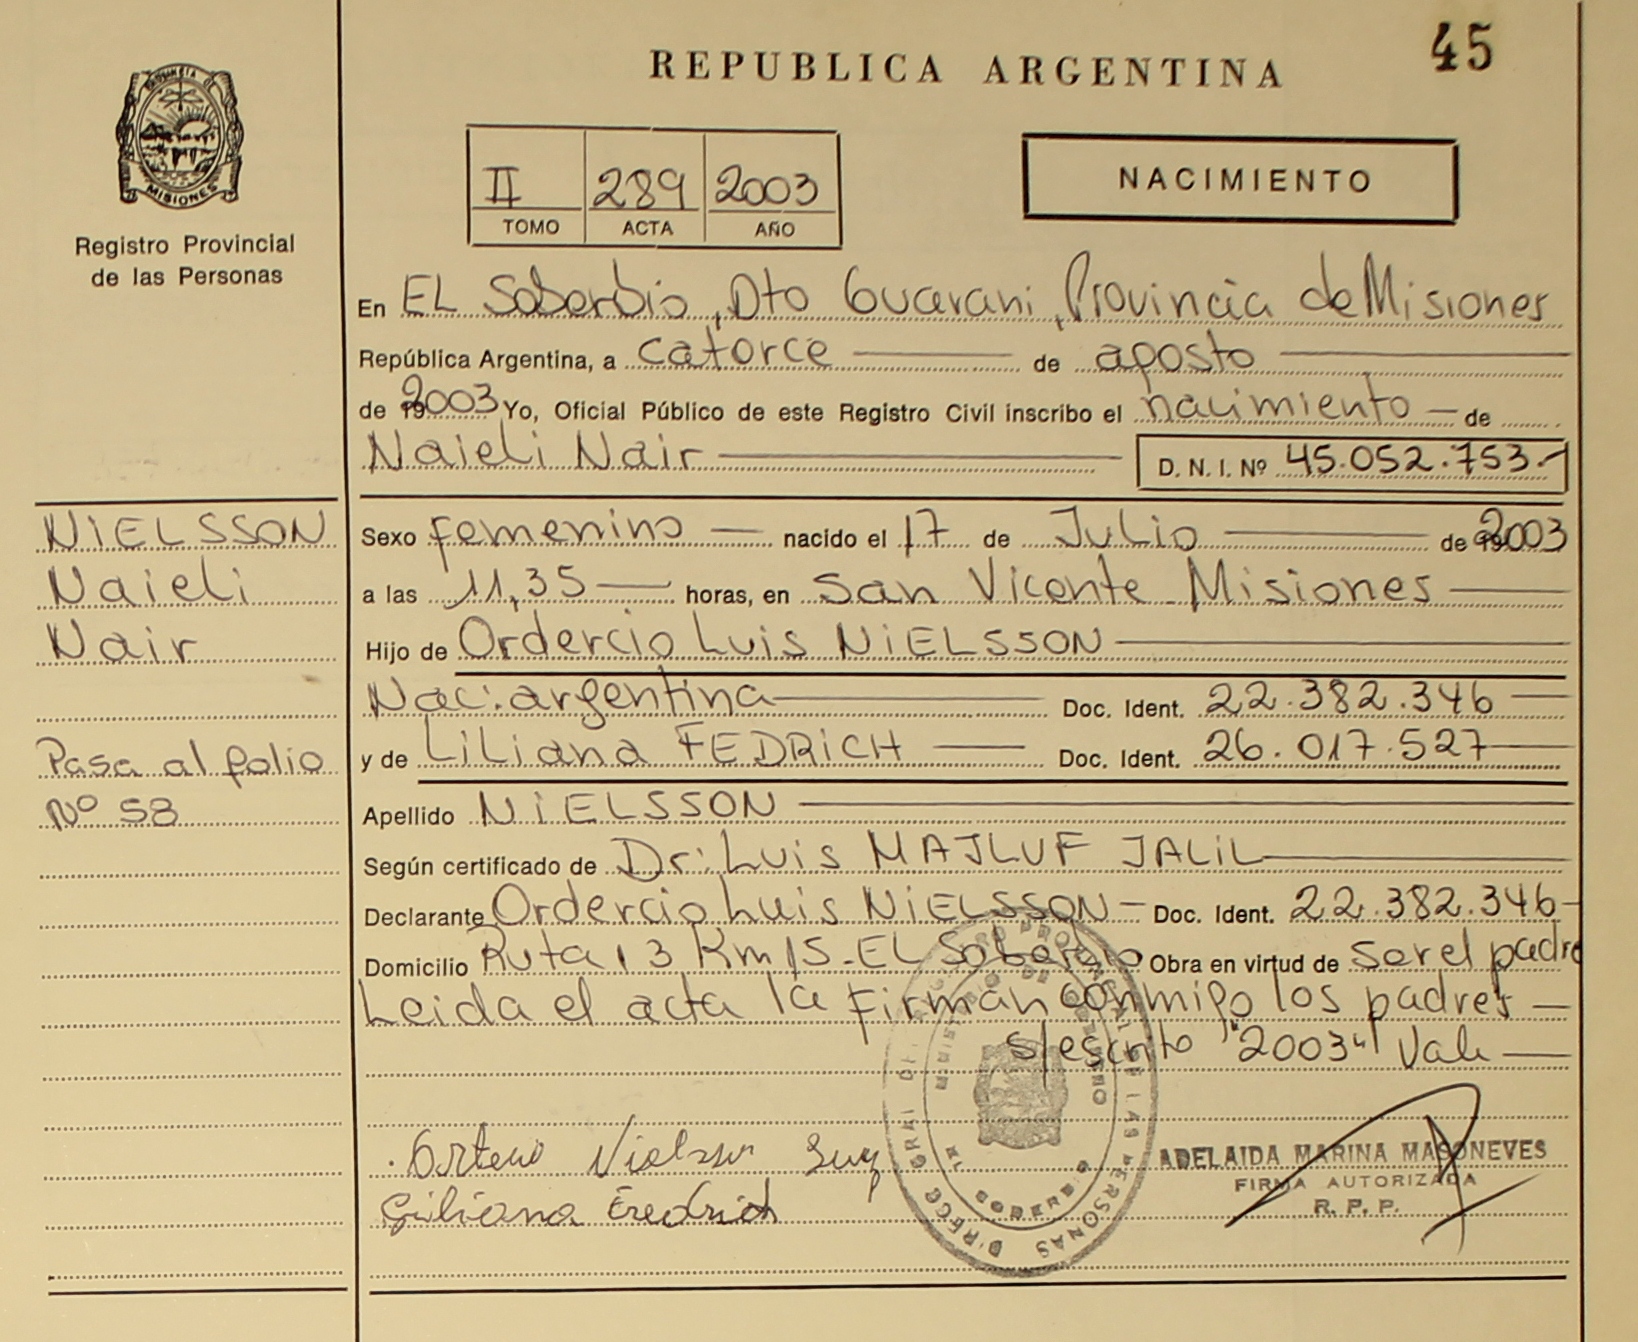 45
REPUBLICA ARGENTINA
PROVINCIA DE MISIONES
Registro Provincial
de las Personas
II 289 2003
TOMO ACTA AÑO
NACIMIENTO
En EL Soberbio, Dto Guarani, Provincia de Misiones
República Argentina, a catorce de agosto
de 2003 Yo, Oficial Público de este Registro Civil inscribo el nacimiento de
Naieli Nair D. N. I. Nº 45.052.753.-
NIELSSON
Naieli
Nair
Pasa al folio
Nº 58
Sexo femenino nacido el 17 de Julio de 2003
a las 11,35 horas, en San Vicente Misiones
Hijo de Ordercio Luis NIELSSON
Nac: argentina Doc. Ident. 22.382.346
y de Liliana FEDRICH Doc. Ident. 26.017.527
Apellido NIELSSON
Según certificado de Dr: Luis MAJLUF JALIL
Declarante Ordercio Luis NIELSSON - Doc. Ident. 22.382.346-
Domicilio Ruta 13 Km 15 - EL Soberbio Obra en virtud de ser el padre
Leida el acta la firman conmigo los padres
s/escrito "2003" Vale
Nielsson
ADELAIDA MARINA MASONEVES
FIRMA AUTORIZADA
R. P. P.